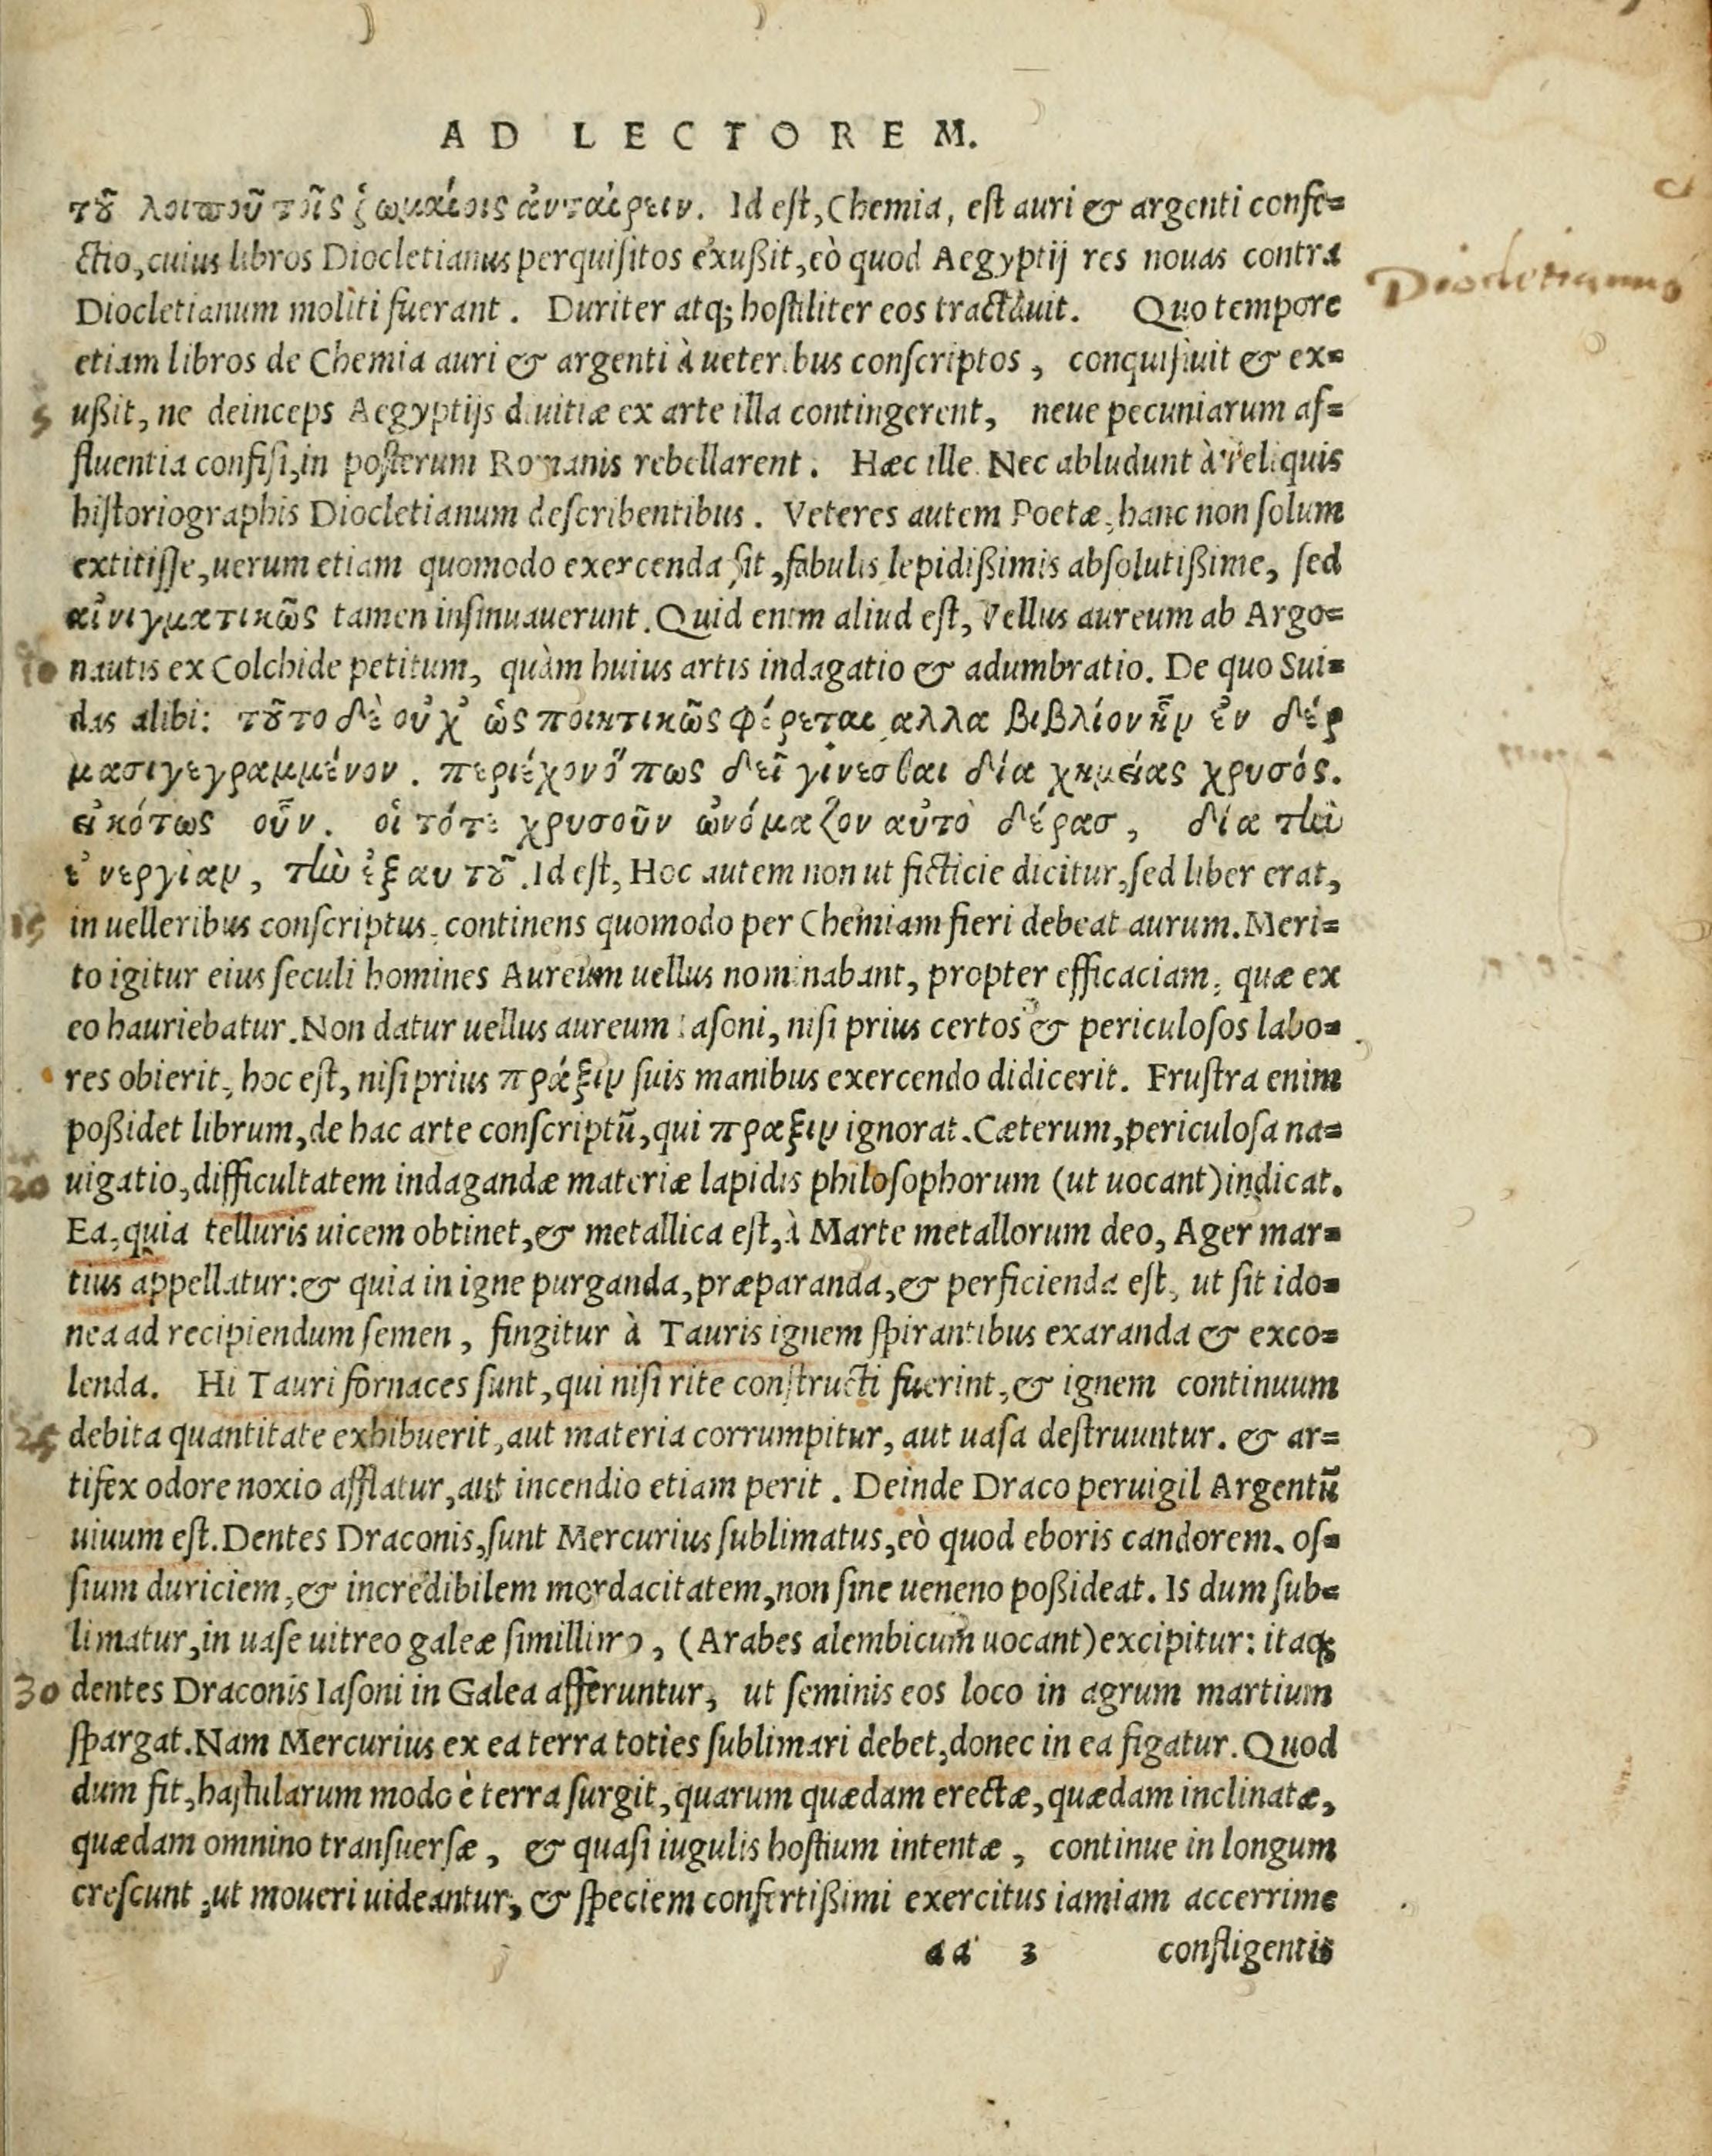 AD LECTOREM.
τȣ͂ λοιποῦ τοῖς ῥωμαίοις ἀνταίρειν. Id eſt, Chemia, eſt auri & argenti confe=
ctio, cuius libros Diocletianus perquiſitos exußit, eò quod Aegyptij res nouas contra
Diocletianum moliti fuerant. Duriter atq; hoſtiliter eos tractauit. Quo tempore
etiam libros de Chemia auri & argenti à ueteribus conſcriptos, conquiſiuit & ex=
5 ußit, ne deinceps Aegyptijs diuitiæ ex arte illa contingerent, neue pecuniarum af=
fluentia confiſi, in poſterum Romanis rebellarent. Hæc ille. Nec abludunt à reliquis
hiſtoriographis Diocletianum deſcribentibus. Veteres autem Poetæ, hanc non ſolum
extitiſſe, uerum etiam quomodo exercenda ſit, fabulis lepidißimis abſolutißime, ſed
αἰνιγματικῶς tamen inſinuauerunt. Quid enim aliud eſt, Vellus aureum ab Argo=
10 nautis ex Colchide petitum, quàm huius artis indagatio & adumbratio. De quo Sui=
das alibi: τȣ͂το δὲ οὐχ᾽ ὡς ποιητικῶς φέρεται αλλα βιβλίον ἦν ἐν δέρ
μασι γεγραμμένον. περιέχον ὅπως δεῖ γίνεσθαι δία χημείας χρυσός.
εἰκότως οὖν. οἱ τότε χρυσοῦν ὠνόμαζον αὐτὸ δέρασ, δία τὴν
ἐνεργίαν, τὴν ἐξ αυτȣ͂. Id eſt, Hoc autem non ut ficticie dicitur, ſed liber erat,
15 in uelleribus conſcriptus, continens quomodo per Chemiam fieri debeat aurum. Meri=
to igitur eius ſeculi homines Aureum uellus nominabant, propter efficaciam, quæ ex
eo hauriebatur. Non datur uellus aureum Iaſoni, niſi prius certos & periculoſos labo=
res obierit, hoc eſt, niſi prius πράξιν ſuis manibus exercendo didicerit. Fruſtra enim
poßidet librum, de hac arte conſcriptū, qui πραξιν ignorat. Cæterum, periculoſa na=
20 uigatio, difficultatem indagandæ materiæ lapidis philoſophorum (ut uocant) indicat.
Ea, quia telluris uicem obtinet, & metallica eſt, à Marte metallorum deo, Ager mar=
tius appellatur: & quia in igne purganda, præparanda, & perficienda eſt, ut ſit ido=
nea ad recipiendum ſemen, fingitur à Tauris ignem ſpirantibus exaranda & exco=
lenda. Hi Tauri fornaces ſunt, qui niſi rite conſtructi fuerint, & ignem continuum
25 debita quantitate exhibuerit, aut materia corrumpitur, aut uaſa deſtruuntur. & ar=
tifex odore noxio afflatur, aut incendio etiam perit. Deinde Draco peruigil Argentū
uiuum eſt. Dentes Draconis, ſunt Mercurius ſublimatus, eò quod eboris candorem, oſ=
ſium duriciem, & incredibilem mordacitatem, non ſine ueneno poßideat. Is dum ſub=
limatur, in uaſe uitreo galeæ ſimillimo, (Arabes alembicum uocant) excipitur: itaq;
30 dentes Draconis Iaſoni in Galea afferuntur, ut ſeminis eos loco in agrum martium
ſpargat. Nam Mercurius ex ea terra toties ſublimari debet, donec in ea figatur. Quod
dum fit, haſtularum modo è terra ſurgit, quarum quædam erectæ, quædam inclinatæ,
quædam omnino tranſuerſæ, & quaſi iugulis hoſtium intentæ, continue in longum
creſcunt, ut moueri uideantur, & ſpeciem confertißimi exercitus iamiam accerrime
aa 3 confligentis
Diocletianus